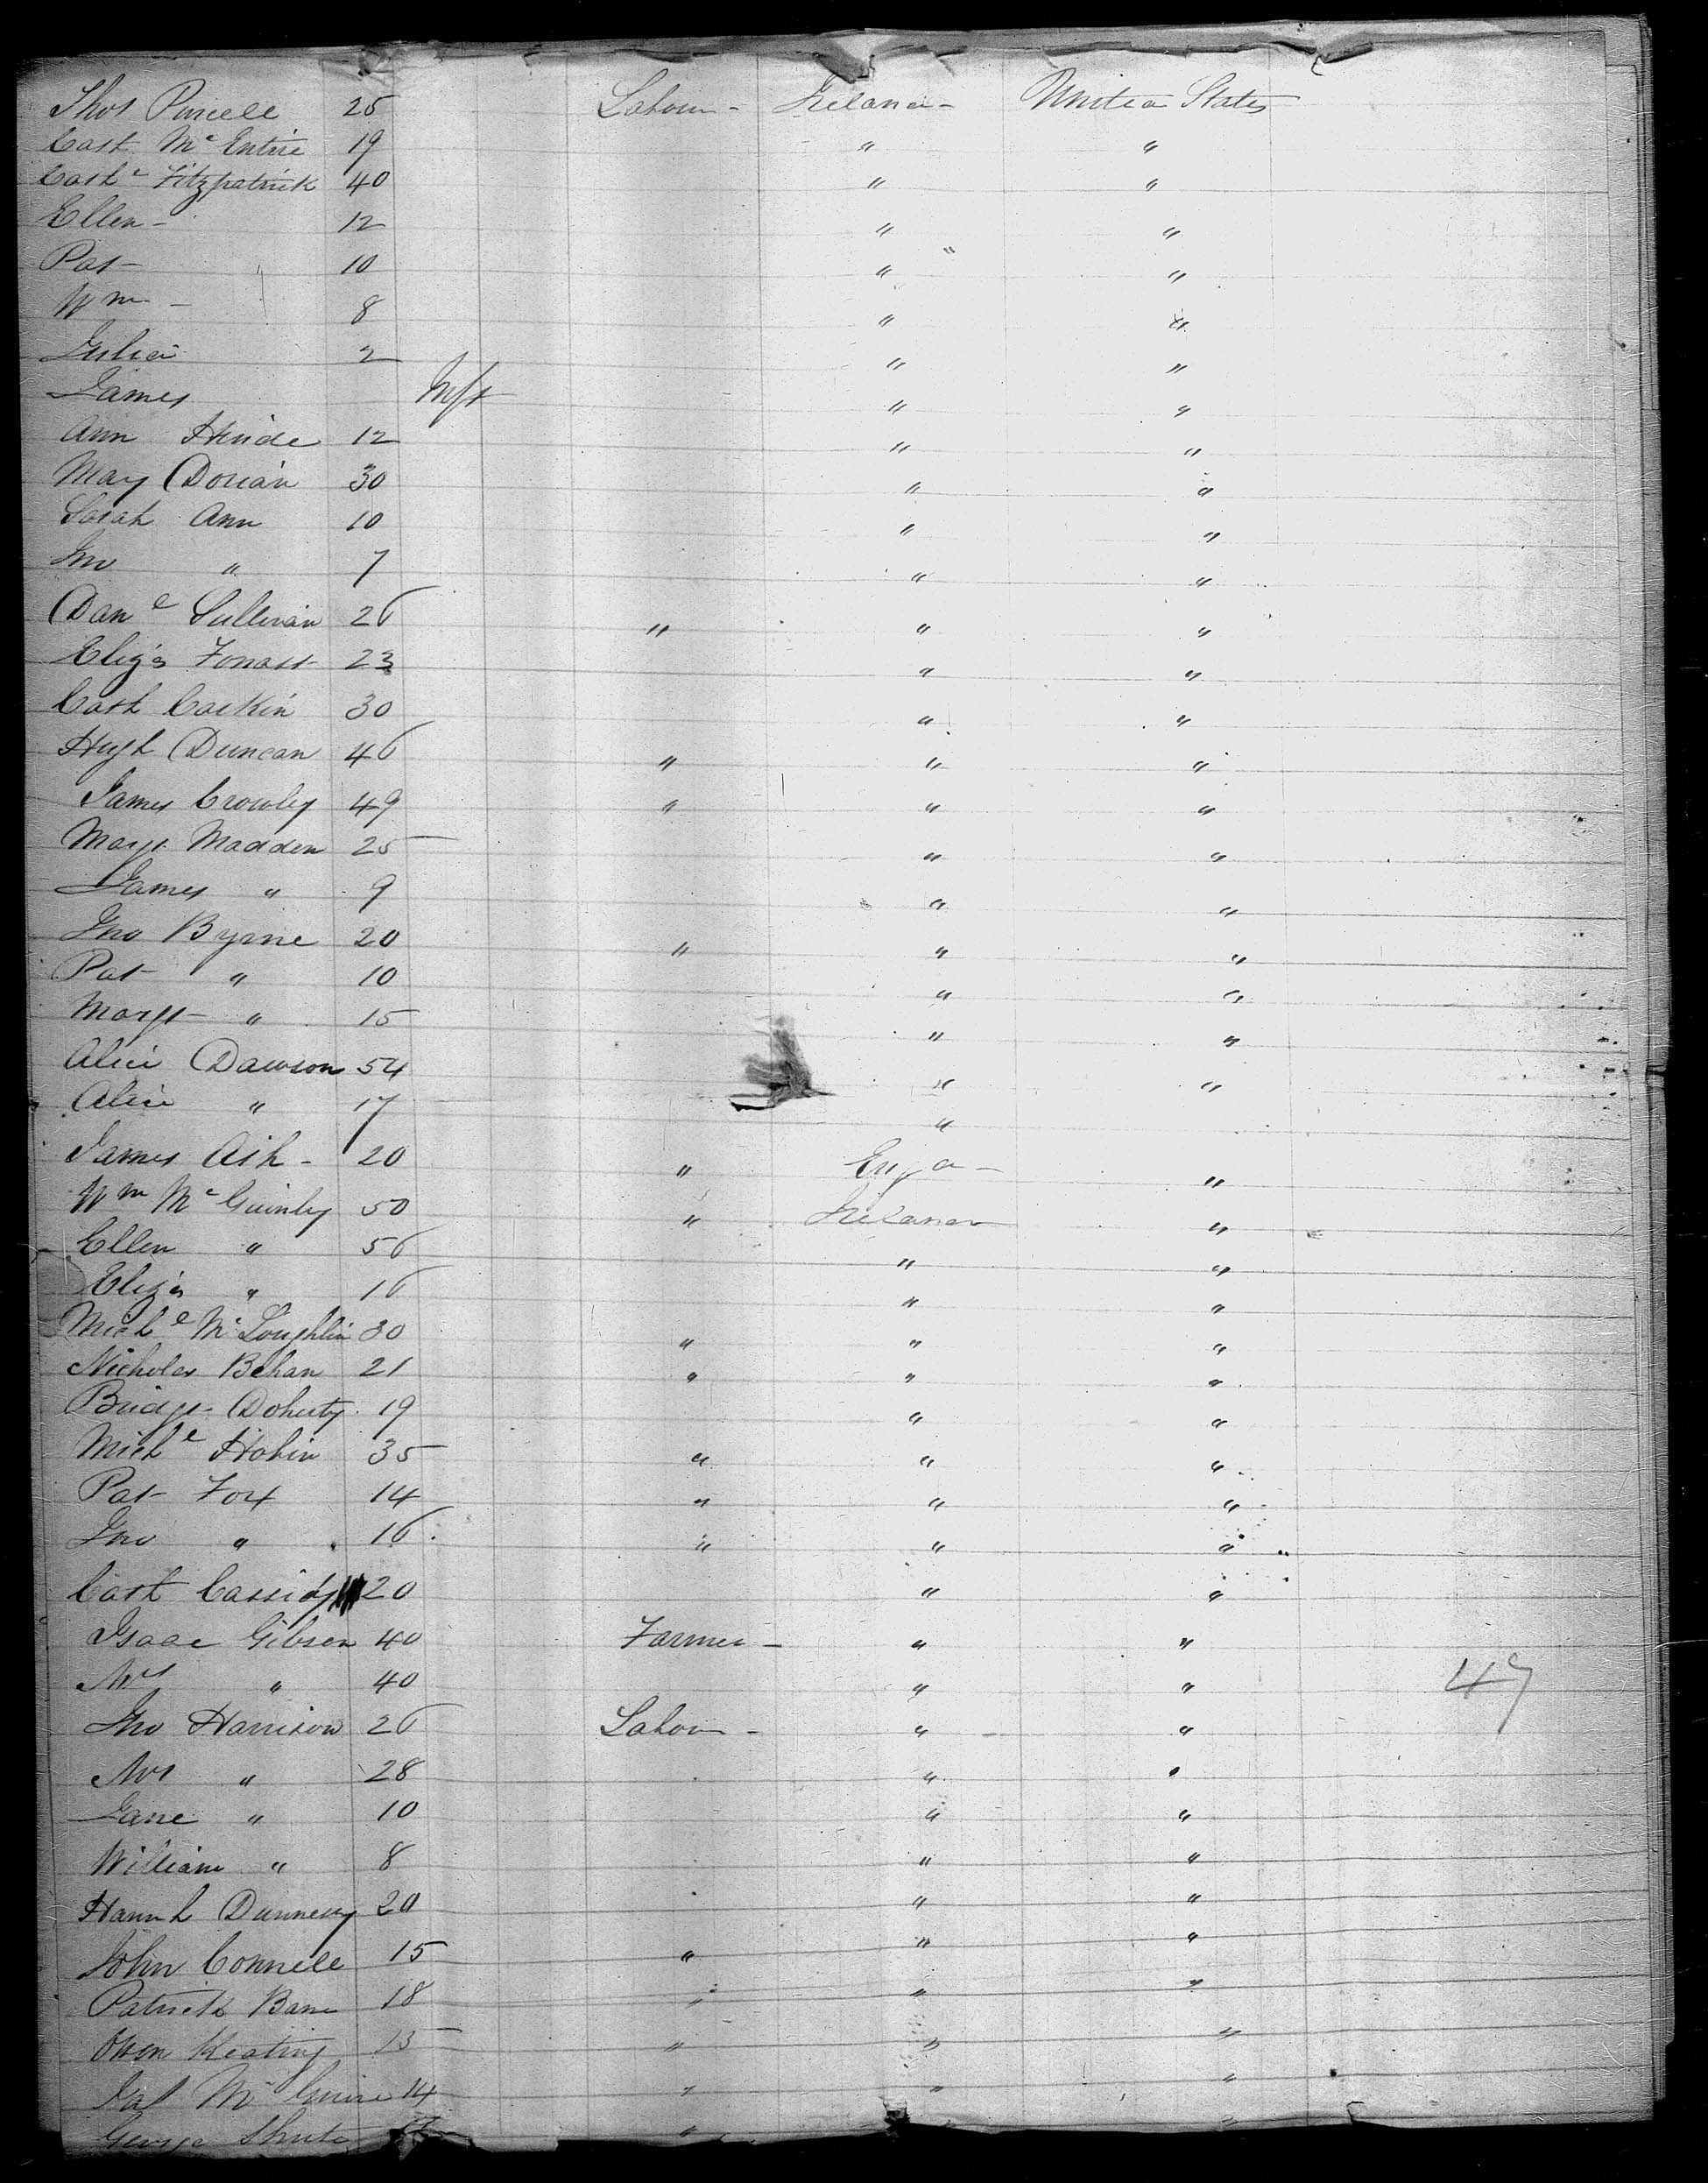 Thos Purcell 25 Labour - Ireland - United States
Cath Mc Entire 19 " "
Cathe Fitzpatrick 40 " "
Ellen - 12 " "
Pat - 10 " "
Wm - 8 " "
Julia 2 " "
James Inft " "
Ann Hinde 12 " "
Mary Dorian 30 " "
Sarah Ann 10 " "
Jno " 7 " "
Danl Sullivan 26 " " "
Eliza 23 " "
Cath 30 " "
Hugh Duncan 46 " " "
James Crowley 49 " " "
Margt Madden 25 " "
James " 9 " "
Jno Byrne 20 " " "
Pat " 10 " "
Margt " 15 " "
Alice Dawson 54 " "
Alice " 17 "
James Ash - 20 " Engd - "
Wm Mc Guinley 50 " Ireland "
Ellen " 56 " "
Eliza " 16 " "
Michl Mc Loughlin 30 " " "
Nicholas Behan 21 " " "
Bridgt Doherty 19 " "
Michl Hobin 35 " " "
Pat Fox 14 " " "
Jno " 16 " " "
Cath Cassidy 20 " "
Isaac Gibson 40 Farmer - " "
Mrs " 40 " " 47
Jno Harrison 26 Labour - " "
Mrs " 28 " "
Jane " 10 " "
William " 8 " "
Hannh 20 " "
John Connell 15 " " "
Patrick Bane 18 " " "
Owen Keating 15 " " "
Jas Mc Guire 14 " " "
George Shute " " "